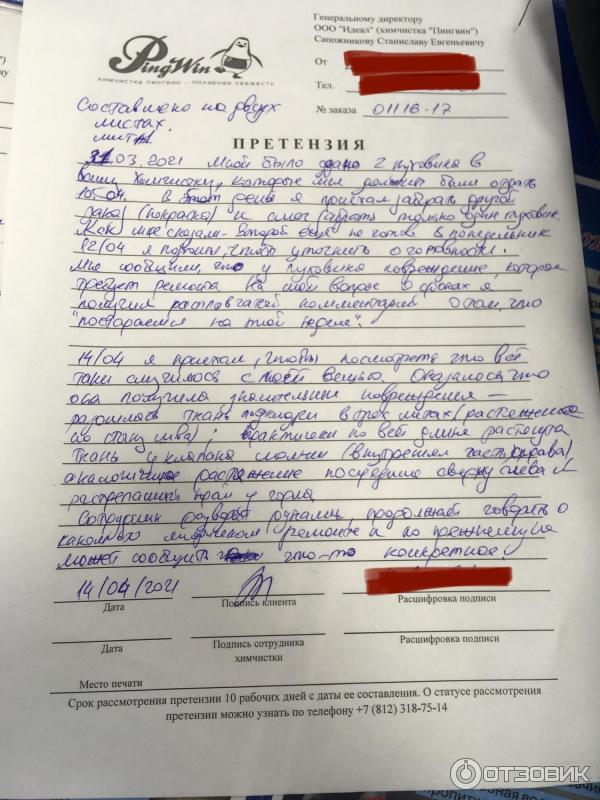 Генеральному директору
ООО "Идеал" (химчистка "Пингвин")
Сапожникову Станиславу Евгеньевичу
PingWin
химчистка пингвин - пожарная свежесть
От
Тел.
№ заказа 01116-17
Составлено на двух
листах.
ПРЕТЕНЗИЯ
31.03.2021 Мной было 2 пуховика в
Вашу Химчистку, которые мне должны были отдать
10.04. В этот день я приехал забрать другой
(покраска) и смог забрать только один пуховик.
Как мне сказали - второй ещё не готов. В понедельник
12/04 я, чтобы уточнить о готовности.
Мне сообщили, что у пуховика повреждение, которое
требует ремонта. На мой вопрос о сроках я
получил комментарий о том, что
"постараемся на этой неделе".
14/04 я приехал, чтобы посмотреть что всё
таки случилось с моей вещью. Оказалось, что
она получила значительные повреждения -
разошлась ткань в трёх местах (растяжение
по шва); практически по всей длине растянута
ткань у клапана молнии (внутренняя часть, справа)
аналогичное растяжение посередине сверху слева и
край у
Сотрудник разводит руками, продолжает говорить о
каком-то ремонте и по прежнему не
может сообщить что-то конкретное
14/04/2021
Дата
Подпись клиента
Расшифровка подписи
Дата
Подпись сотрудника
химчистки
Расшифровка подписи
Место печати
Срок рассмотрения претензии 10 рабочих дней с даты ее составления. О статусе рассмотрения
претензии можно узнать по телефону +7 (812) 318-75-14
ОТЗОВИК